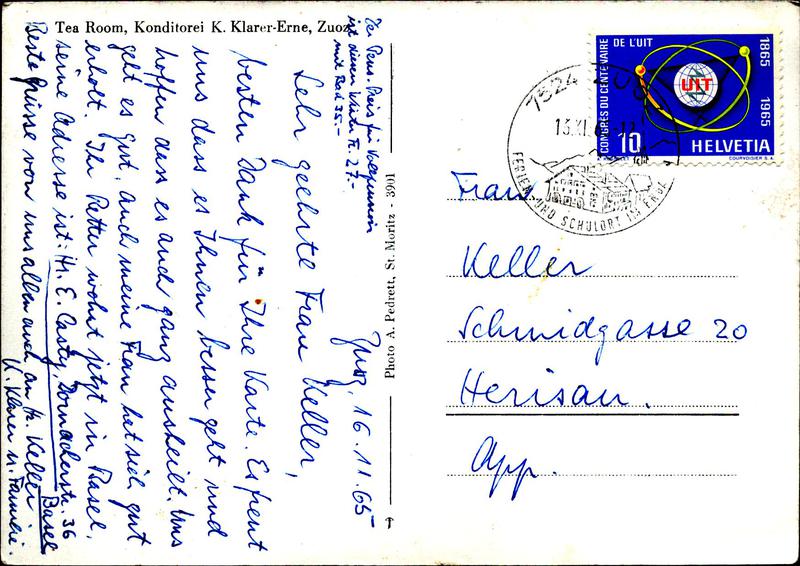 Tea Room, Konditorei K. Klarer-Erne, Zuoz
Zuoz, 16.11.65
Sehr geehrte Frau Keller,
besten Dank für Ihre Karte. Es freut
uns dass es Ihnen besser geht und
hoffen dass es auch ganz ausheilt. Uns
geht es gut, auch meine Frau hat sich gut
erholt. Ihr Vetter wohnt jetzt in Basel.
seine Adresse ist: Hr. E. Casty, Dornacherstr. 36
Basel
Beste Grüsse von uns allen auch an Hr. Keller
K. Klarer u. Familie.
Pens. Preis für
ist diesen Winter Fr. 27.-
mit Bad 35.-
Photo A. Pedrett, St. Moritz - 3901
CONGRES DU CENTENAIRE DE L'UIT
1865
1965
UIT
10
HELVETIA
COURVOISIER S.A.
7524 ZUOZ
13.XI.
FERIEN- UND SCHULORT IM ENGADIN
Frau
Keller
Schmidgasse 20
Herisau.
App.